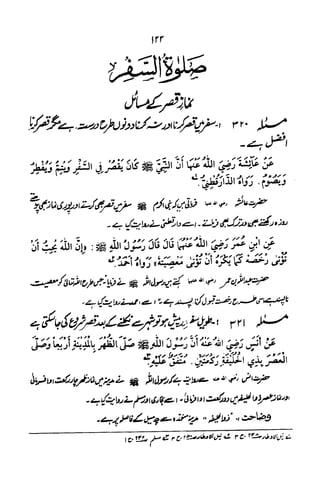 ۱۴۴
صَلٰوةُ السَّفَرِ
نماز قصر کے مسائل
مسئلہ ۳۲۰ :- سفر میں قصر کرنا اور نہ کرنا دونوں طرح درست ہے مگر قصر کرنا
افضل ہے ۔
عَنْ عَائِشَةَ رَضِيَ اللّٰهُ عَنْهَا أَنَّ النَّبِيَّ ﷺ كَانَ يَقْصُرُ فِي السَّفَرِ وَيُتِمُّ وَيُفْطِرُ
وَيَصُومُ. رَوَاهُ الدَّارَقُطْنِيُّ.
حضرت عائشہ فرماتی ہیں کہ نبی اکرم ﷺ سفر میں قصر بھی کرتے اور پوری نماز بھی پڑھتے
روزہ رکھتے بھی اور ترک بھی فرماتے ۔ اسے دارقطنی نے روایت کیا ہے ۔
عَنِ ابْنِ عُمَرَ رَضِيَ اللّٰهُ عَنْهُمَا قَالَ قَالَ رَسُولُ اللّٰهِ ﷺ : وَإِنَّ اللّٰهَ يُحِبُّ أَنْ
تُؤْتَى رُخَصُهُ كَمَا يَكْرَهُ أَنْ تُؤْتَى مَعْصِيَتُهُ، رَوَاهُ أَحْمَدُ.
حضرت عبداللہ بن عمر کہتے ہیں رسول اللہ ﷺ نے فرمایا جس طرح اللہ تعالیٰ کو معصیت
ناپسند ہے اسی طرح رخصت قبول کرنا پسند ہے ۔ اسے احمد نے روایت کیا ہے ۔
مسئلہ ۳۲۱ :- طویل سفر درپیش ہو تو شہر سے نکلنے کے بعد قصر شروع کی جا سکتی ہے
عَنْ أَنَسٍ رَضِيَ اللّٰهُ عَنْهُ أَنَّ رَسُولَ اللّٰهِ ﷺ صَلَّى الظُّهْرَ بِالْمَدِينَةِ أَرْبَعًا وَصَلَّى
الْعَصْرَ بِذِي الْحُلَيْفَةِ رَكْعَتَيْنِ. مُتَّفَقٌ عَلَيْهِ.
حضرت انس سے روایت ہے کہ رسول اللہ ﷺ نے مدینہ میں نماز ظہر چار رکعت ادا فرمائی
اور نماز عصر ذوالحلیفہ میں دو رکعت ادا فرمائی ۔ اسے بخاری اور مسلم نے روایت کیا ہے ۔
وضاحت :- ذوالحلیفہ مدینہ منورہ سے چھ میل کے فاصلہ پر ہے ۔